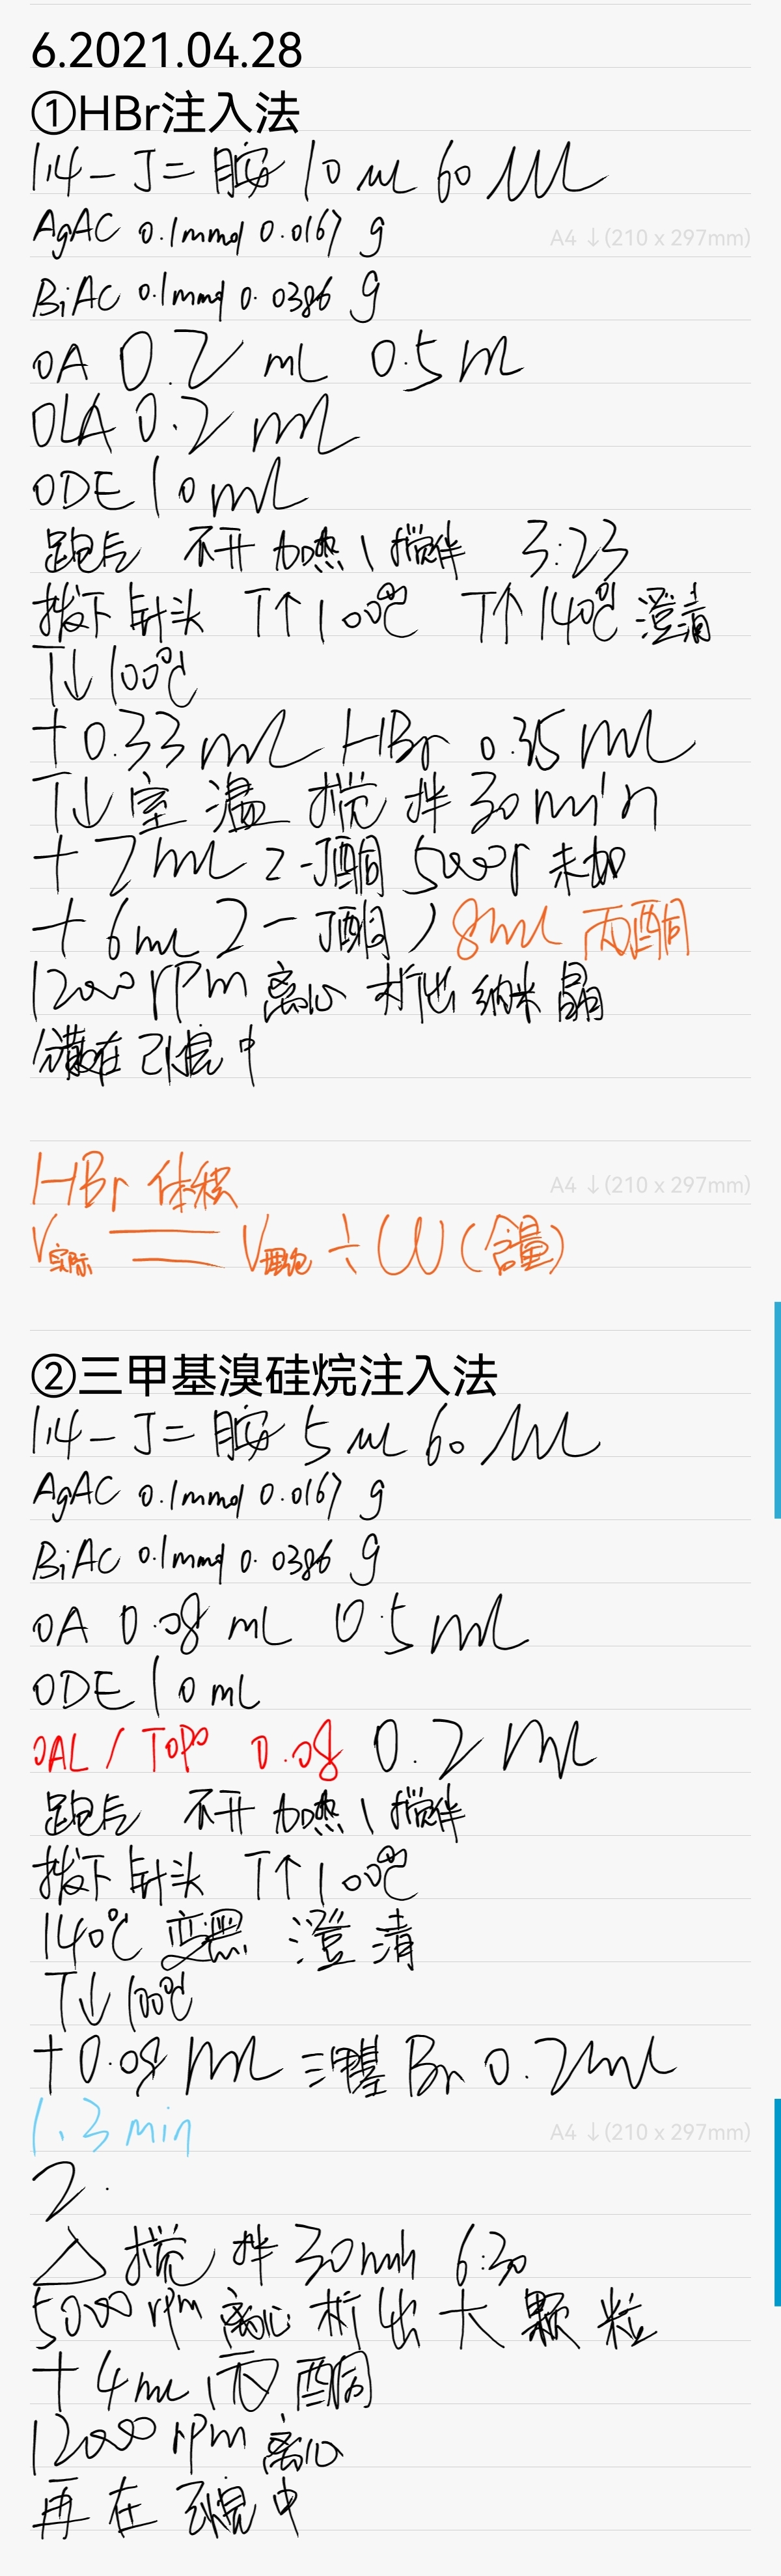 6.2021.04.28
①HBr注入法
1,4-丁二胺 10 mL 60 mL
AgAC 0.1mmol 0.0167 g
A4 ↓(210 x 297mm)
BiAC 0.1mmol 0.0386 g
OA 0.2 mL 0.5 mL
OLA 0.2 mL
ODE 10 mL
不开加热\搅拌 3:23
拨下针头 T↑100℃ T↑140℃ 澄清
T↓100℃
+0.33 mL HBr 0.35 mL
T↓室温 搅拌30min
+2mL 2-丁酮 5000r 未加
+6mL 2-丁酮 / 8mL 丙酮
12000 rpm 离心 析出 纳米晶
分散在己烷中
HBr 体积
A4 ↓(210 x 297mm)
V实际 = V理论 ÷ W(含量)
②三甲基溴硅烷注入法
1,4-丁二胺 5 mL 60 mL
AgAC 0.1mmol 0.0167 g
BiAC 0.1mmol 0.0386 g
OA 0.08 mL 0.5 mL
ODE 10 mL
OAL / TOPO 0.08 0.2 mL
不开加热\搅拌
拨下针头 T↑100℃
140℃ 变黑 澄清
T↓100℃
+0.08 mL 三甲基Br 0.2mL
1. 3 min
A4 ↓(210 x 297mm)
2.
△ 搅拌30min 6:30
5000 rpm 离心 析出大颗粒
+4mL 丙酮
12000 rpm 离心
再在己烷中